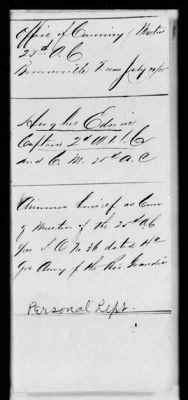 Office of Commy of Musters
25th A.C.
Brownsville Texas July 19/65
Hughes Edwin
Captain 2d
and C. M. 25th A.C
Announces himself as Com
of Musters of the 25th A.C
per S.O. No 36 dated Hd
Qrs Army of the Rio Grande
Personal Reps.